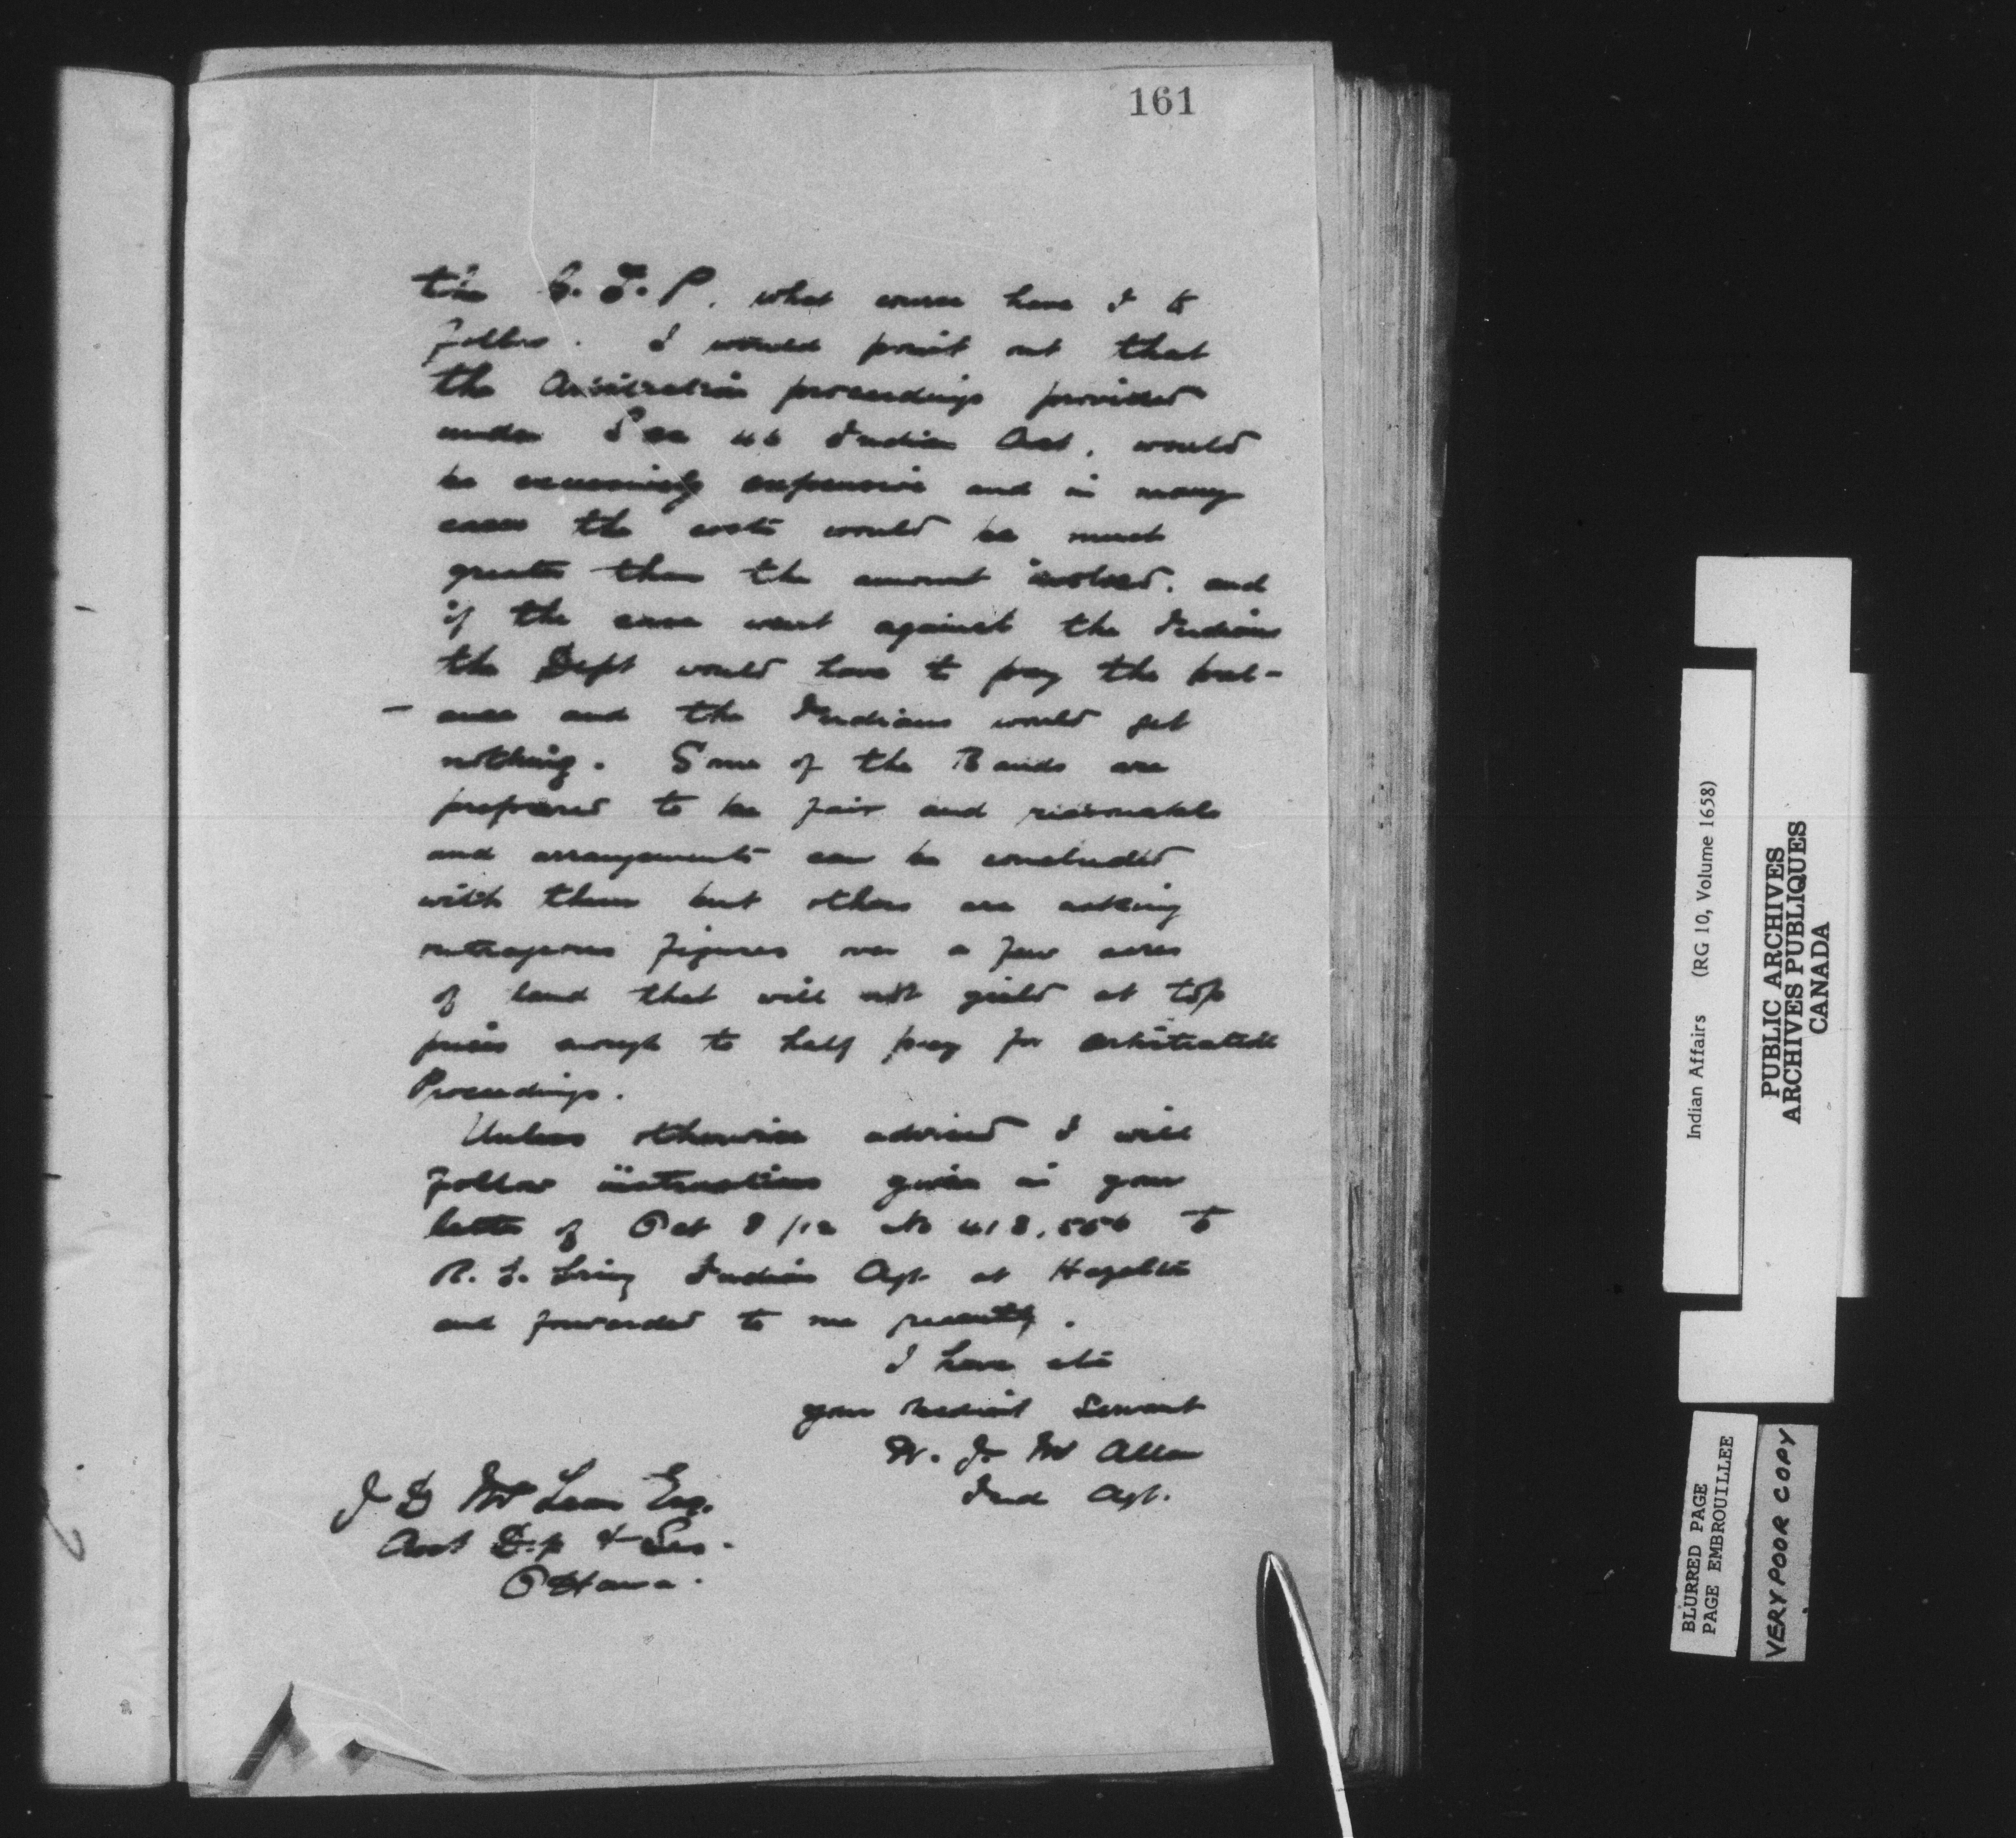 161
the G.T.P. what course have I to
follow. I would point out that
the Arbitration proceedings provided
under Sec 46 Indian Act, would
be excessively expensive and in many
cases the costs would be much
greater than the amount involved, and
if the case went against the Indians
the Dept would have to pay the bal-
- ance and the Indians would get
nothing. Some of the Bands are
prepared to be fair and reasonable
and arrangements can be concluded
with them but others are asking
outrageous figures over a few acres
of land that will not yield at top
prices enough to half pay for arbitration
Proceedings.
Unless otherwise advised I will
follow instructions given in your
letter of Oct 8/12 No 418,556 to
R. E. Loring Indian Agt. at Hazelton
and forwarded to me recently.
I have etc
your obedient Servant
W. J. Mc Allan
Ind Agt.
J D McLean Esq.
Asst Dep & Sec.
Ottawa.
Indian Affairs (RG 10, Volume 1658)
PUBLIC ARCHIVES
ARCHIVES PUBLIQUES
CANADA
BLURRED PAGE
PAGE EMBROUILLEE
VERY POOR COPY